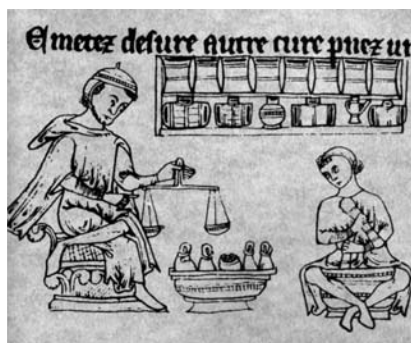 Et metez desure autre cure pnez un